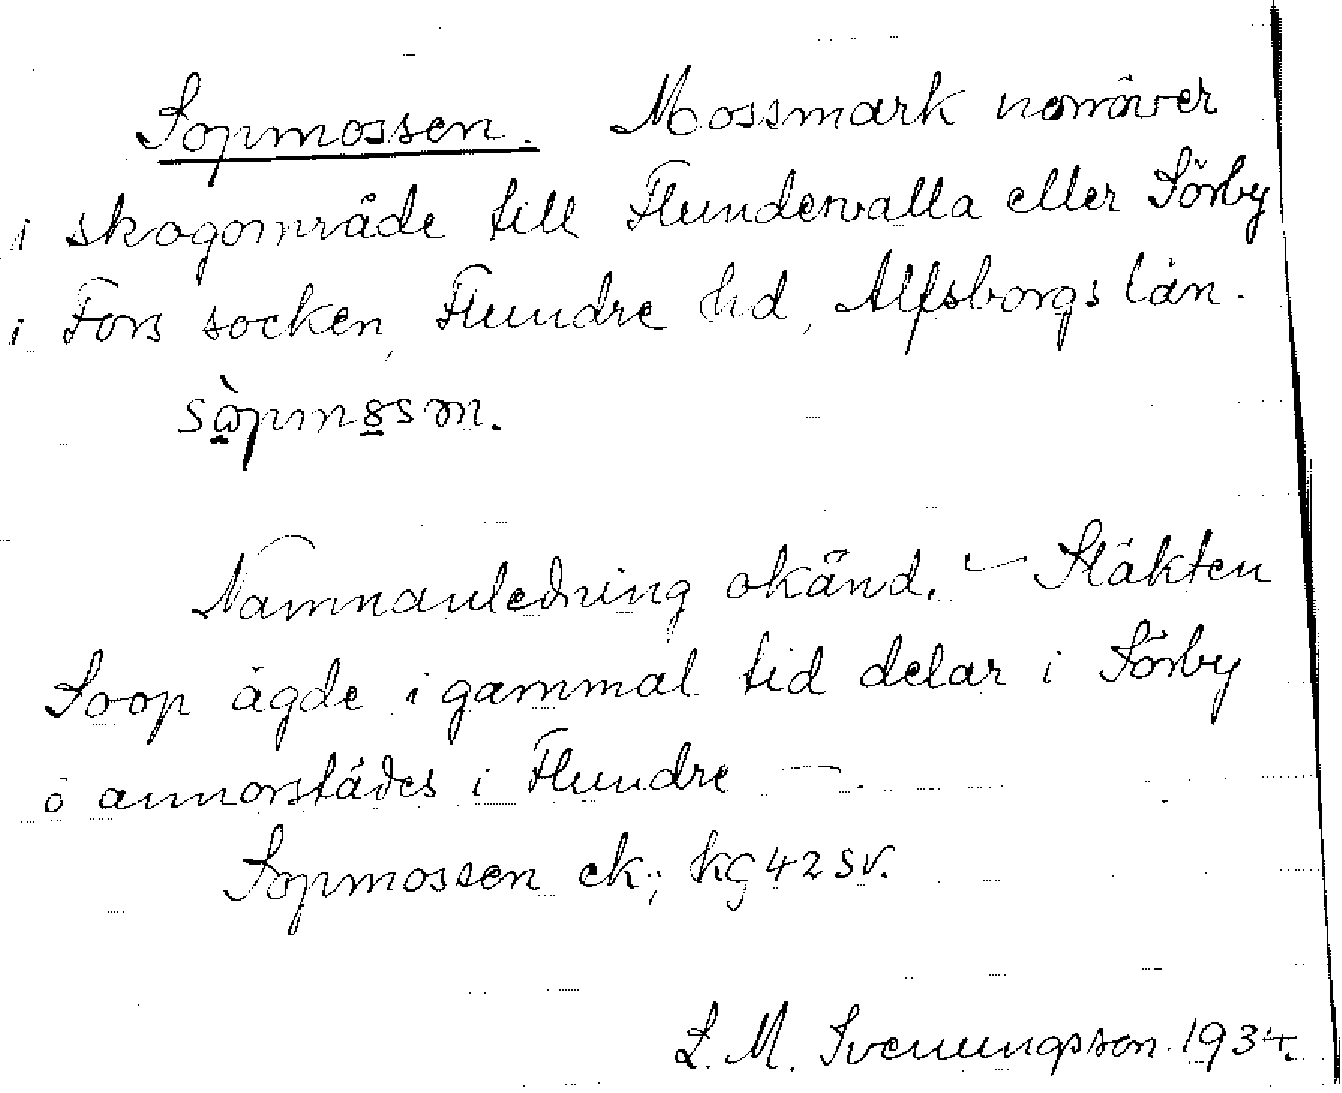 Sopmossen. Mossmark norröver
i skogområde till Flundervalla eller Sörby
i Fors socken, Flundre hd, Älfsborgs län.
sɷ̀pmɞsɷn.
Namnanledning okänd. – Släkten
Soop ägde i gammal tid delar i Sörby
o annorstädes i Flundre –.
Sopmossen ek; kG 42 SV.
L. M. Svenungsson 1934.